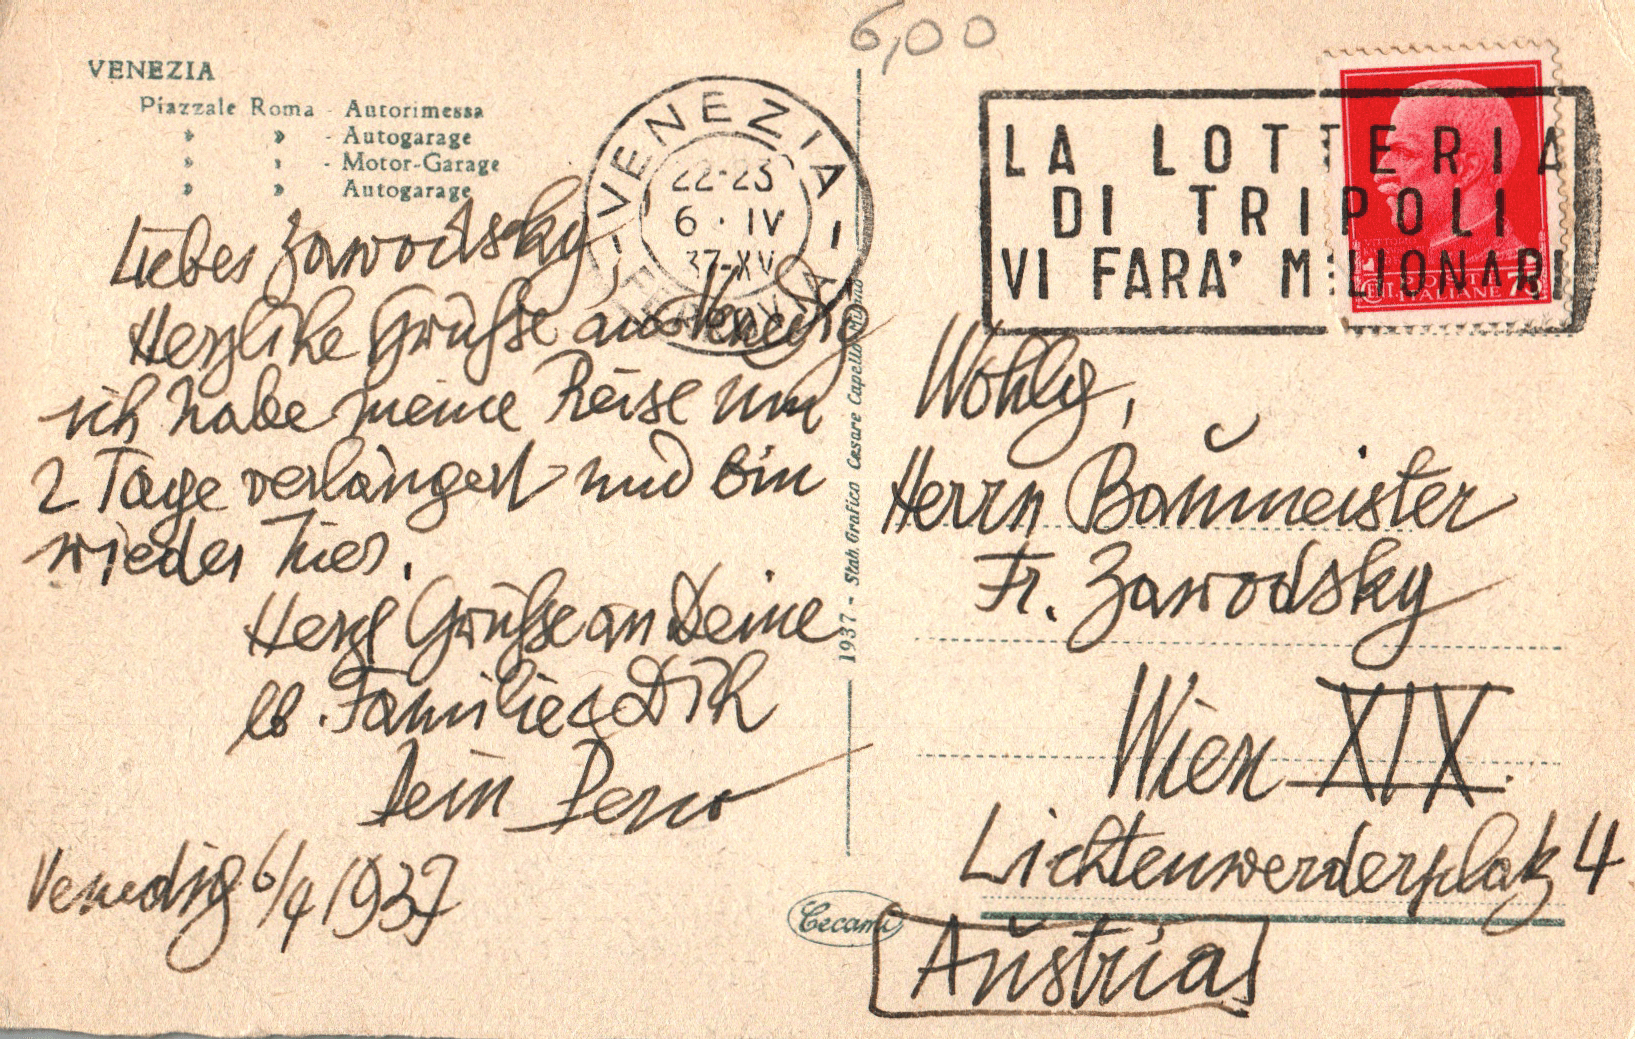 6,00
VENEZIA
Piazzale Roma - Autorimessa
» » - Autogarage
» » - Motor-Garage
» » - Autogarage
Liebes Zawodsky,
Herzliche Grüsse aus Venedig
ich habe meine Reise um
2 Tage verlängert und bin
wieder hier.
Herzl Grüsse an Deine
lb. Familie & Dich
Dein
Venedig 6/4 1937
VENEZIA
22-23
6 · IV
37-XV
FERROVIA
1937 - Stab. Grafico Cesare Capello
Cecami
LA LOTTERIA
DI TRIPOLI
VI FARA' MILIONARI
POSTE ITALIANE 75
Wohlg,
Herrn Baumeister
Fr. Zawodsky
Wien XIX.
Lichtenwerderplatz 4
Austria